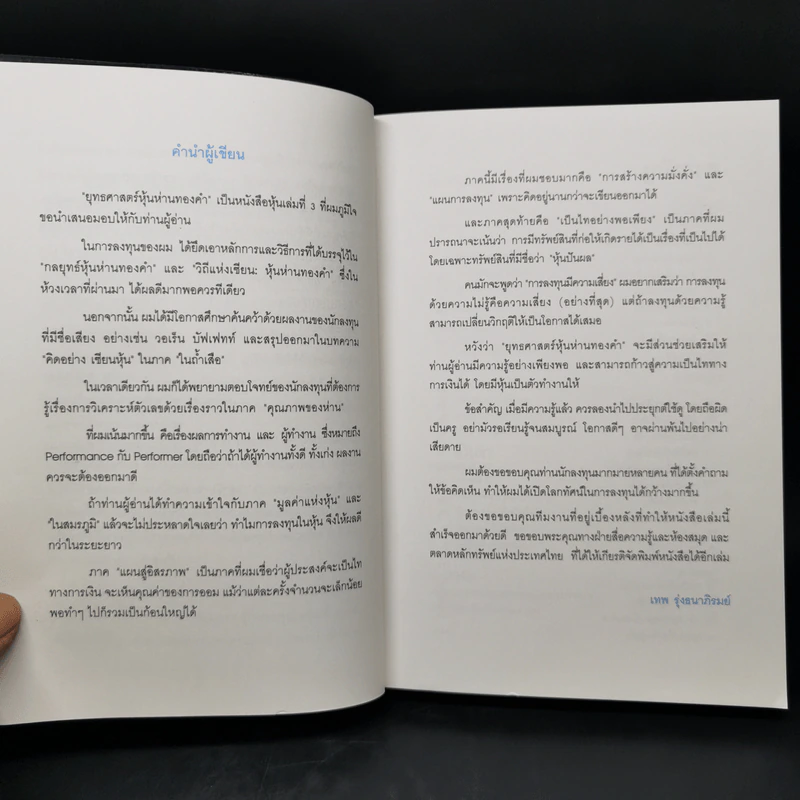 คำนำผู้เขียน
"ยุทธศาสตร์หุ้นห่านทองคำ" เป็นหนังสือหุ้นเล่มที่ 3 ที่ผมภูมิใจ
ขอนำเสนอมอบให้กับท่านผู้อ่าน
ในการลงทุนของผม ได้ยึดเอาหลักการและวิธีการที่ได้บรรจุไว้ใน
"กลยุทธ์หุ้นห่านทองคำ" และ "วิถีแห่งเซียน: หุ้นห่านทองคำ" ซึ่งใน
ห้วงเวลาที่ผ่านมา ได้ผลดีมากพอควรทีเดียว
นอกจากนั้น ผมได้มีโอกาสศึกษาค้นคว้าด้วยผลงานของนักลงทุน
ที่มีชื่อเสียง อย่างเช่น วอเร็น บัฟเฟทท์ และสรุปออกมาในบทความ
"คิดอย่าง เซียนหุ้น" ในภาค "ในถ้ำเสือ"
ในเวลาเดียวกัน ผมก็ได้พยายามตอบโจทย์ของนักลงทุนที่ต้องการ
รู้เรื่องการวิเคราะห์ตัวเลขด้วยเรื่องราวในภาค "คุณภาพของห่าน"
ที่ผมเน้นมากขึ้น คือเรื่องผลการทำงาน และ ผู้ทำงาน ซึ่งหมายถึง
Performance กับ Performer โดยถือว่าถ้าได้ผู้ทำงานทั้งดี ทั้งเก่ง ผลงาน
ควรจะต้องออกมาดี
ถ้าท่านผู้อ่านได้ทำความเข้าใจกับภาค "มูลค่าแห่งหุ้น" และ
"ในสมรภูมิ" แล้วจะไม่ประหลาดใจเลยว่า ทำไมการลงทุนในหุ้น จึงให้ผลดี
กว่าในระยะยาว
ภาค "แผนสู่อิสรภาพ" เป็นภาคที่ผมเชื่อว่าผู้ประสงค์จะเป็นไท
ทางการเงิน จะเห็นคุณค่าของการออม แม้ว่าแต่ละครั้งจำนวนจะเล็กน้อย
พอทำๆ ไปก็รวมเป็นก้อนใหญ่ได้
ภาคนี้มีเรื่องที่ผมชอบมากคือ "การสร้างความมั่งคั่ง" และ
"แผนการลงทุน" เพราะคิดอยู่นานกว่าจะเขียนออกมาได้
และภาคสุดท้ายคือ "เป็นไทอย่างพอเพียง" เป็นภาคที่ผม
ปรารถนาจะเน้นว่า การมีทรัพย์สินที่ก่อให้เกิดรายได้เป็นเรื่องที่เป็นไปได้
โดยเฉพาะทรัพย์สินที่มีชื่อว่า "หุ้นปันผล"
คนมักจะพูดว่า "การลงทุนมีความเสี่ยง" ผมอยากเสริมว่า การลงทุน
ด้วยความไม่รู้คือความเสี่ยง (อย่างที่สุด) แต่ถ้าลงทุนด้วยความรู้
สามารถเปลี่ยนวิกฤติให้เป็นโอกาสได้เสมอ
หวังว่า "ยุทธศาสตร์หุ้นห่านทองคำ" จะมีส่วนช่วยเสริมให้
ท่านผู้อ่านมีความรู้อย่างเพียงพอ และสามารถก้าวสู่ความเป็นไททาง
การเงินได้ โดยมีหุ้นเป็นตัวทำงานให้
ข้อสำคัญ เมื่อมีความรู้แล้ว ควรลองนำไปประยุกต์ใช้ดู โดยถือผิด
เป็นครู อย่ามัวรอเรียนรู้จนสมบูรณ์ โอกาสดีๆ อาจผ่านพ้นไปอย่างน่า
เสียดาย
ผมต้องขอขอบคุณท่านนักลงทุนมากมายหลายคน ที่ได้ตั้งคำถาม
ให้ข้อคิดเห็น ทำให้ผมได้เปิดโลกทัศน์ในการลงทุนได้กว้างมากขึ้น
ต้องขอขอบคุณทีมงานที่อยู่เบื้องหลังที่ทำให้หนังสือเล่มนี้
สำเร็จออกมาด้วยดี ขอขอบพระคุณทางฝ่ายสื่อความรู้และห้องสมุด และ
ตลาดหลักทรัพย์แห่งประเทศไทย ที่ได้ให้เกียรติจัดพิมพ์หนังสือได้อีกเล่ม
เทพ รุ่งธนาภิรมย์